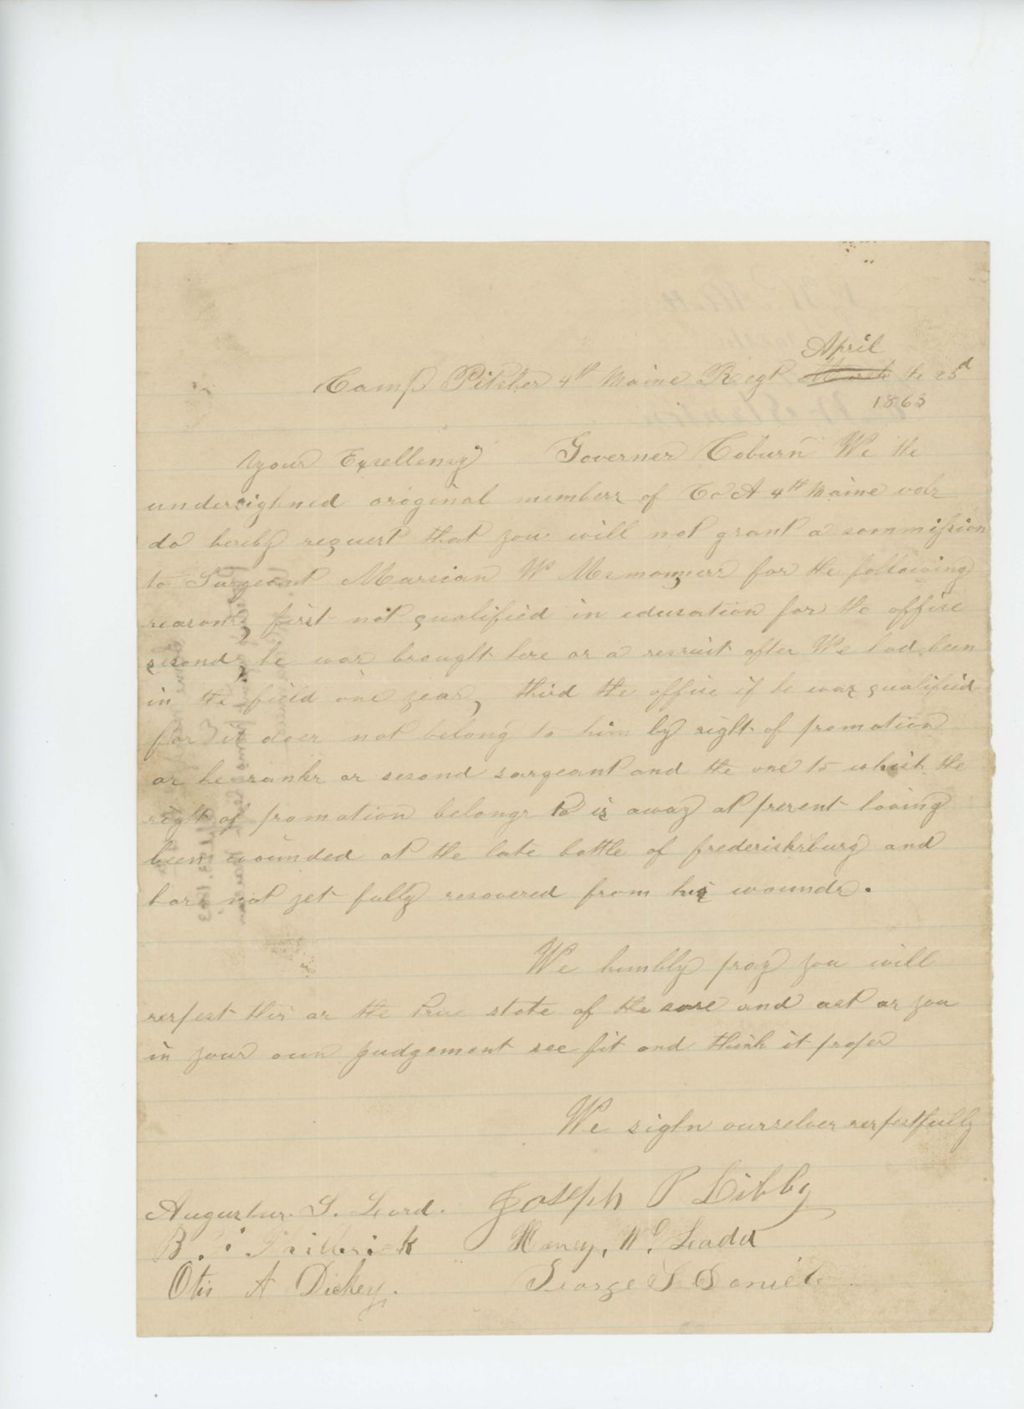 April
Camp Pitcher 4th Maine Regt March the 23d
1863
Your Excellency Governer Coburn We the
undersighned original members of Co A 4th Maine vols
do hereby request that you will not grant a commission
to Sargeant Marcian W for the following
reasons, first not qualified in education for the office
second, he was brought here as a recruit after We had been
in the field one year, third the office if he was qualified
for it does not belong to him by right of promotion
as he ranks as second sargeant and the one to which the
right of promotion belongs to is away at present having
been wounded at the late battle of frederickburg and
has not yet fully recovered from his wounds.
We humbly pray you will
respect this as the true state of the case and act as you
in your own judgement see fit and think it proper
We sighn ourselves respectfully
Augustus S. Lord. Joseph P Libby
B. Philbrick Henry, W. Ladd
Otis A Dickey. George S Daniels